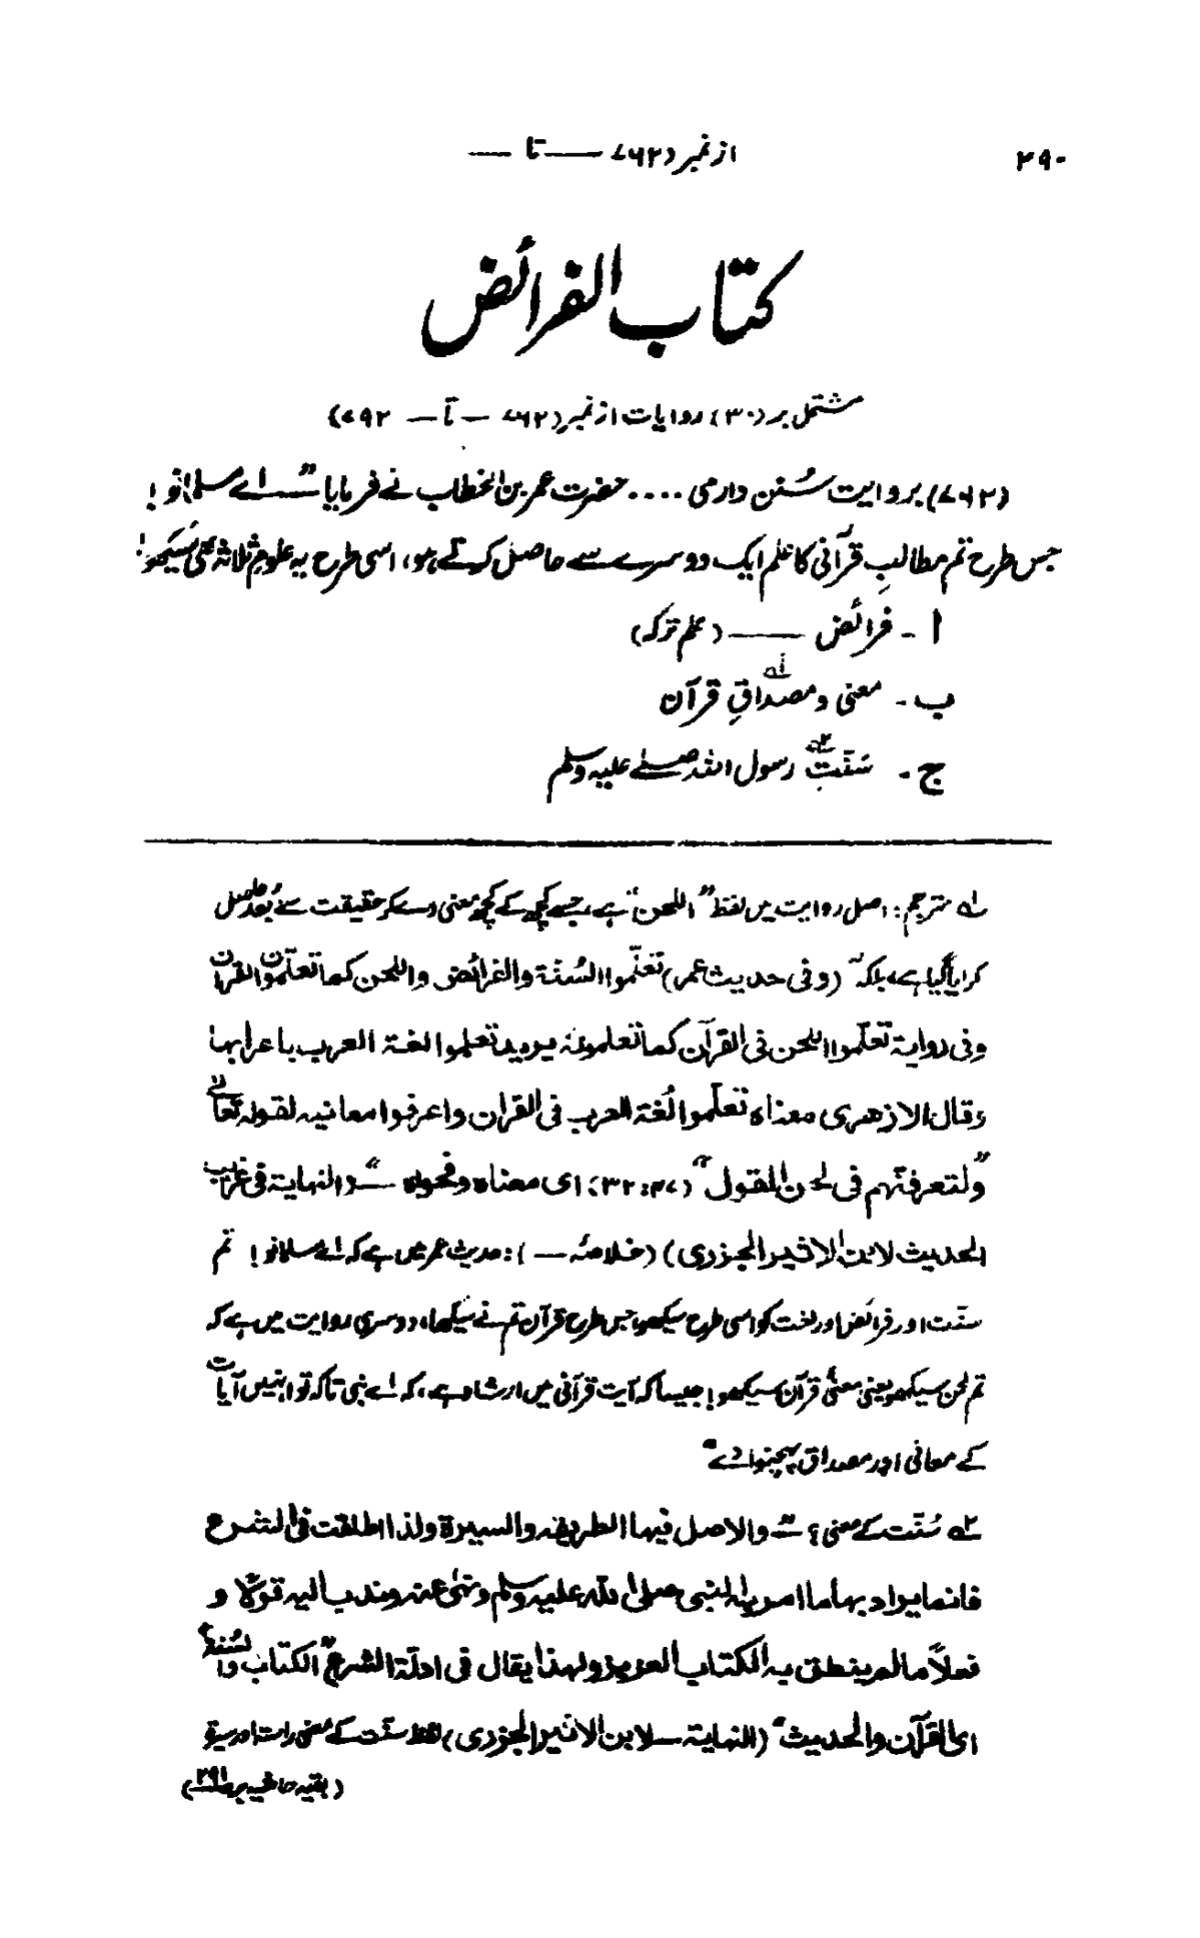 ۲۹۰
از نمبر (۷۶۲ —— تا ——
کتاب الفرائض
مشتمل بر (۳۰) روایات از نمبر (۷۶۲ — تا — ۷۹۲)
(۷۶۲) بروایت سُنن دارمی .... حضرت عمر بن الخطاب نے فرمایا "—— اے مسلمانو!
جس طرح تم مطالبِ قرآنی کا علم ایک دوسرے سے حاصل کرتے ہو، اسی طرح یہ علومِ ثلاثہ بھی سیکھو!
ا - فرائض —— (علم ترکہ)
ب - معنی و مصداقِ قرآن ؂۱
ج - سُنّتِ ؂۲ رسول اللہ صلے علیہ وسلم
؂۱ مترجم: اصل روایت میں لفظ "اللحن" ہے، جسے کچھ کے کچھ معنی دے کر حقیقت سے بُعد حاصل
کرایا گیا ہے، بلکہ "(و فی حدیث عمر) تعلّموا السُنة والفرائض واللحن کما تعلّمون القرآن
وفی روایة تعلّموا اللحن فی القرآن کما تعلمونہ یرید تعلموا لغة العرب باعرابہا
وقال الازھری معناہ تعلّموا لُغة العرب فی القرآن واعرفوا معانیہ لقولہ تعالٰی
"ولتعرفنّہم فی لحن القول" (۴۷:۳۲) ای معناہ وفحواہ —" (النہایة فی غریب
الحدیث لابن الاثیر الجزری) (خلاصہٴ —): حدیث عمر میں ہے کہ اے مسلمانو! تم
سنّت اور فرائض اور لغت کو اسی طرح سیکھو جس طرح قرآن تم نے سیکھا، دوسری روایت میں ہے کہ
تم لحن سیکھو یعنی معنیٔ قرآن سیکھو! جیسا کہ آیت قرآنی میں ارشاد ہے، کہ اے نبی تاکہ تو انہیں آیات
کے معانی اور مصداق پہچنوا دے"
؂۲ سُنّت کے معنی؟ —" والاصل فیہا الطریقہ والسیرة ولذا اطلقت فی الشرع
فانما یراد بہا ما امر بہ النبی صلی اللہ علیہ وسلم ونہٰی عنہ وندب الیہ قولًا و
فعلًا مالم ینطق بہ الکتاب العزیز ولہذا یقال فی ادلّة الشرع "الکتاب والسُنّة"
ای القرآن والحدیث" (النہایة — لابن الاثیر الجزری) لفظ سنّت کے معنی راستہ اور سیرة
(بقیہ حاشیہ بر ص ۲۹۱)